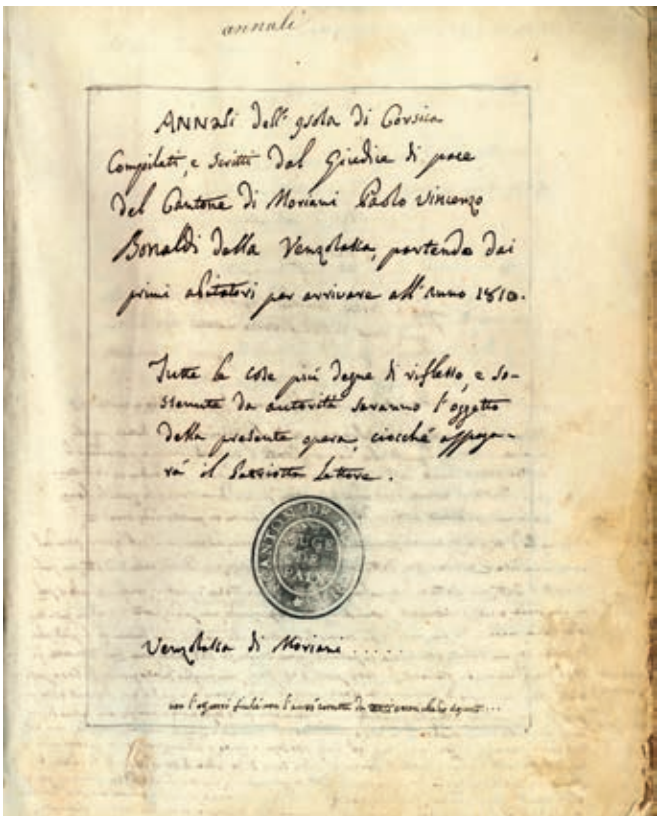 annali
ANNali dell'Isola di Corsica
Compilati, e Scritti dal Giudice di pace
del Cantone di Moriani Paolo Vincenzo
Bonaldi della Venzolasca, partendo dai
primi abitatori per arrivare all'Anno 1810.
Tutte le cose più degne di riflesso, e so-
stenute da autorità saranno l'oggetto
della presente opera, ciocché appaghe-
rà il Patriotta Lettore.
CANTON DE
Venzolasca di Moriani .....
non l'